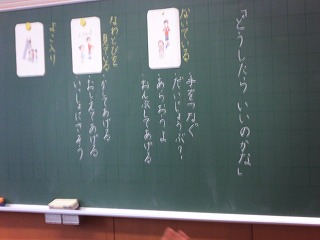 「どうしたら いいのかな」
ないている
手をつなぐ
だいじょうぶ？
あらおうよ
おんぶしてあげる
なわとびを
かしてあげる
おしえてあげる
いっしょにさそう
よこ入り